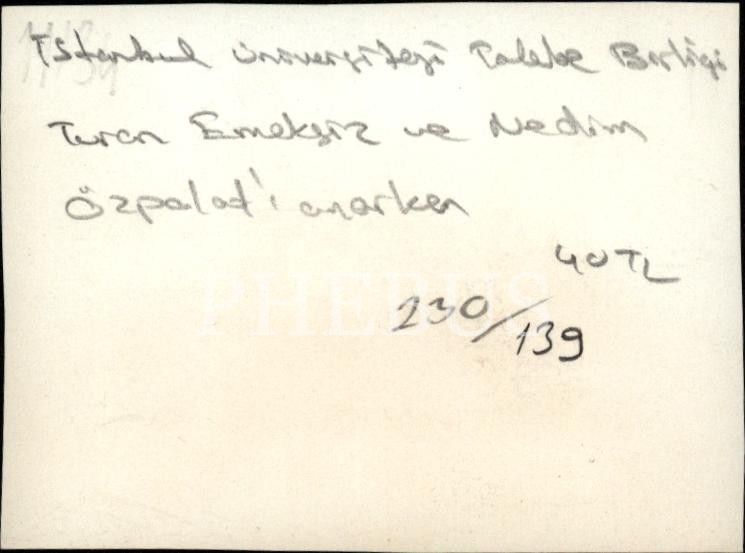 İstanbul Üniversitesi Talebe Birliği
Turan Emeksiz ve Nedim
Özpolat'ı anarken
40 TL
230/139
PHEBUS